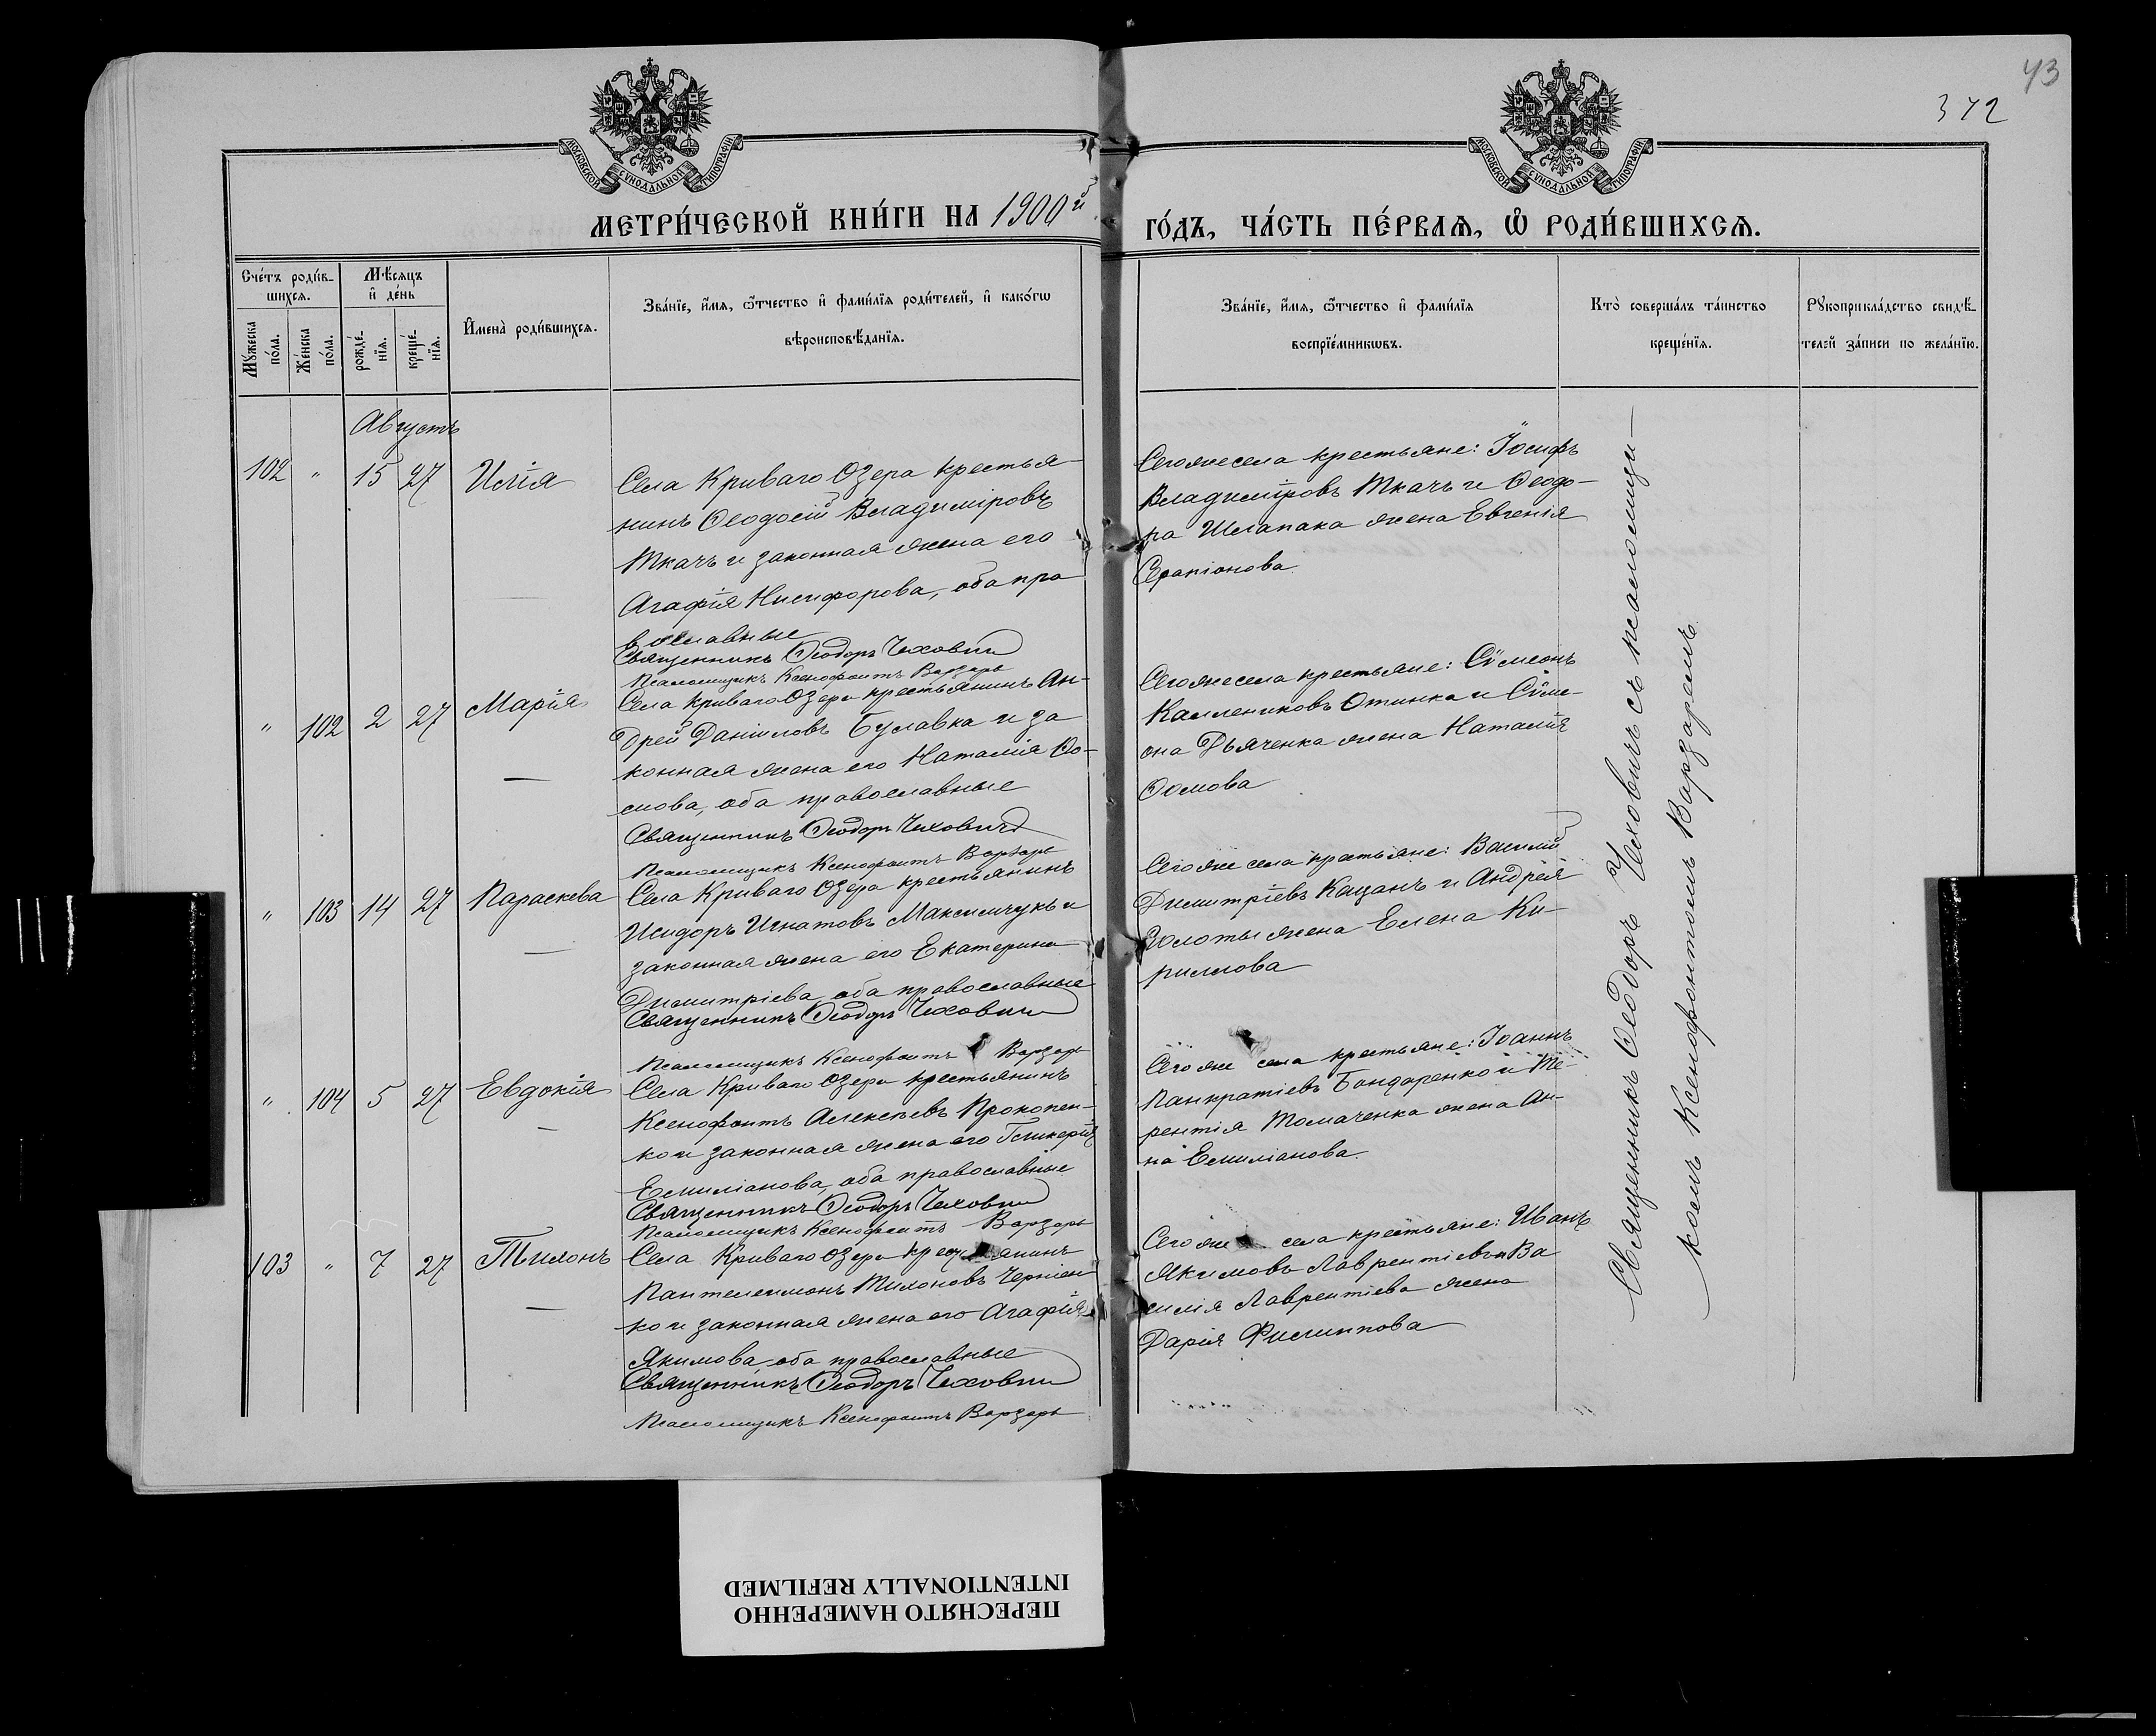 43
372
МОСКОВСКОЙ СѴНОДАЛЬНОЙ ТИПОГРАФІИ
МОСКОВСКОЙ СѴНОДАЛЬНОЙ ТИПОГРАФІИ
МЕТРИ́ЧЕСКОЙ КНИ́ГИ НА 1900й
ГО́ДЪ, ЧА́СТЬ ПЕ́РВАѦ, Ѽ РОДИ́ВШИХСѦ.
Сче́тъ роди́в-
шихсѧ.
Мѣ́сѧцъ
и҆ де́нь
Мꙋ́жеска
по́ла.
Же́нска
по́ла.
рожде́-
нїѧ.
креще́-
нїѧ.
И҆мена̀ роди́вшихсѧ.
Зва́нїе, и҆́мѧ, ѻ҆́тчество и҆ фами́лїѧ роди́телей, и҆ како́гѡ
вѣроисповѣ́данїѧ.
Зва́нїе, и҆́мѧ, ѻ҆́тчество и҆ фами́лїѧ
воспрїе́мникѡвъ.
Кто̀ соверша́лъ та́инство
креще́нїѧ.
Рꙋкоприкла́дство свидѣ́-
телей за́писи по жела́нїю.
Августъ
102 " 15 27 Илія
Села Криваго Озера крестья-
нинъ Ѳеодосій Владиміровъ
Ткачъ и законная жена его
Агафія Никифорова, оба пра
вославные
Священникъ Ѳеодоръ Чехович
Псаломщикъ Ксенофонтъ Варзарь
Сегоже села крестьяне: Іосифъ
Владиміровъ Ткачъ и Ѳеодо-
ра Шлапака жена Евгенія
Серапіонова
" 102 2 27 Марія
Села Криваго Озера крестьянинъ Ан-
дрей Даніиловъ Булавка и за
конная жена его Наталія Ѳо-
мова, оба православные
Священникъ Ѳеодоръ Чехович
Псаломщикъ Ксенофонтъ Варзарь
Сегоже села крестьяне: Сѵмеонъ
Каллениковъ Отинка и Сѵме-
она Дьяченка жена Наталія
Ѳомова
" 103 14 27 Параскева
Села Криваго Озера крестьянинъ
Исидоръ Игнатовъ Максимчукъ и
законная жена его Екатерина
Димитріева, оба православные
Священникъ Ѳеодоръ Чехович
Псаломщикъ Ксенофонтъ Варзарь
Сегоже села крестьяне: Василій
Димитріевъ Кацанъ и Андрея
Золоты жена Елена Ки-
риллова
" 104 5 27 Евдокія
Села Криваго Озера крестьянинъ
Ксенофонтъ Алексѣевъ Прокопен-
ко и законная жена его Гликерія
Емиліанова, оба православные
Священникъ Ѳеодоръ Чехович
Псаломщикъ Ксенофонтъ Варзарь
Сегоже села крестьяне: Іоаннъ
Панкратіевъ Бондаренко и Те-
рентія Томаченка жена Ан-
на Емиліанова.
103 " 7 27 Тихонъ
Села Криваго Озера крестьянинъ
Пантелеимонъ Тихоновъ Чернен
ко и законная жена его Агафія
Якимова, оба православные
Священникъ Ѳеодоръ Чехович
Псаломщикъ Ксенофонтъ Варзарь
Сегоже села крестьяне: Иванъ
Якимовъ Лаврентіевъ и Ва
силія Лаврентіева жена
Дарія Филиппова
Священникъ Ѳеодоръ Чеховичъ съ псаломщи-
комъ Ксенофонтомъ Варзаремъ
ПЕРЕСНЯТО НАМЕРЕННО
INTENTIONALLY REFILMED